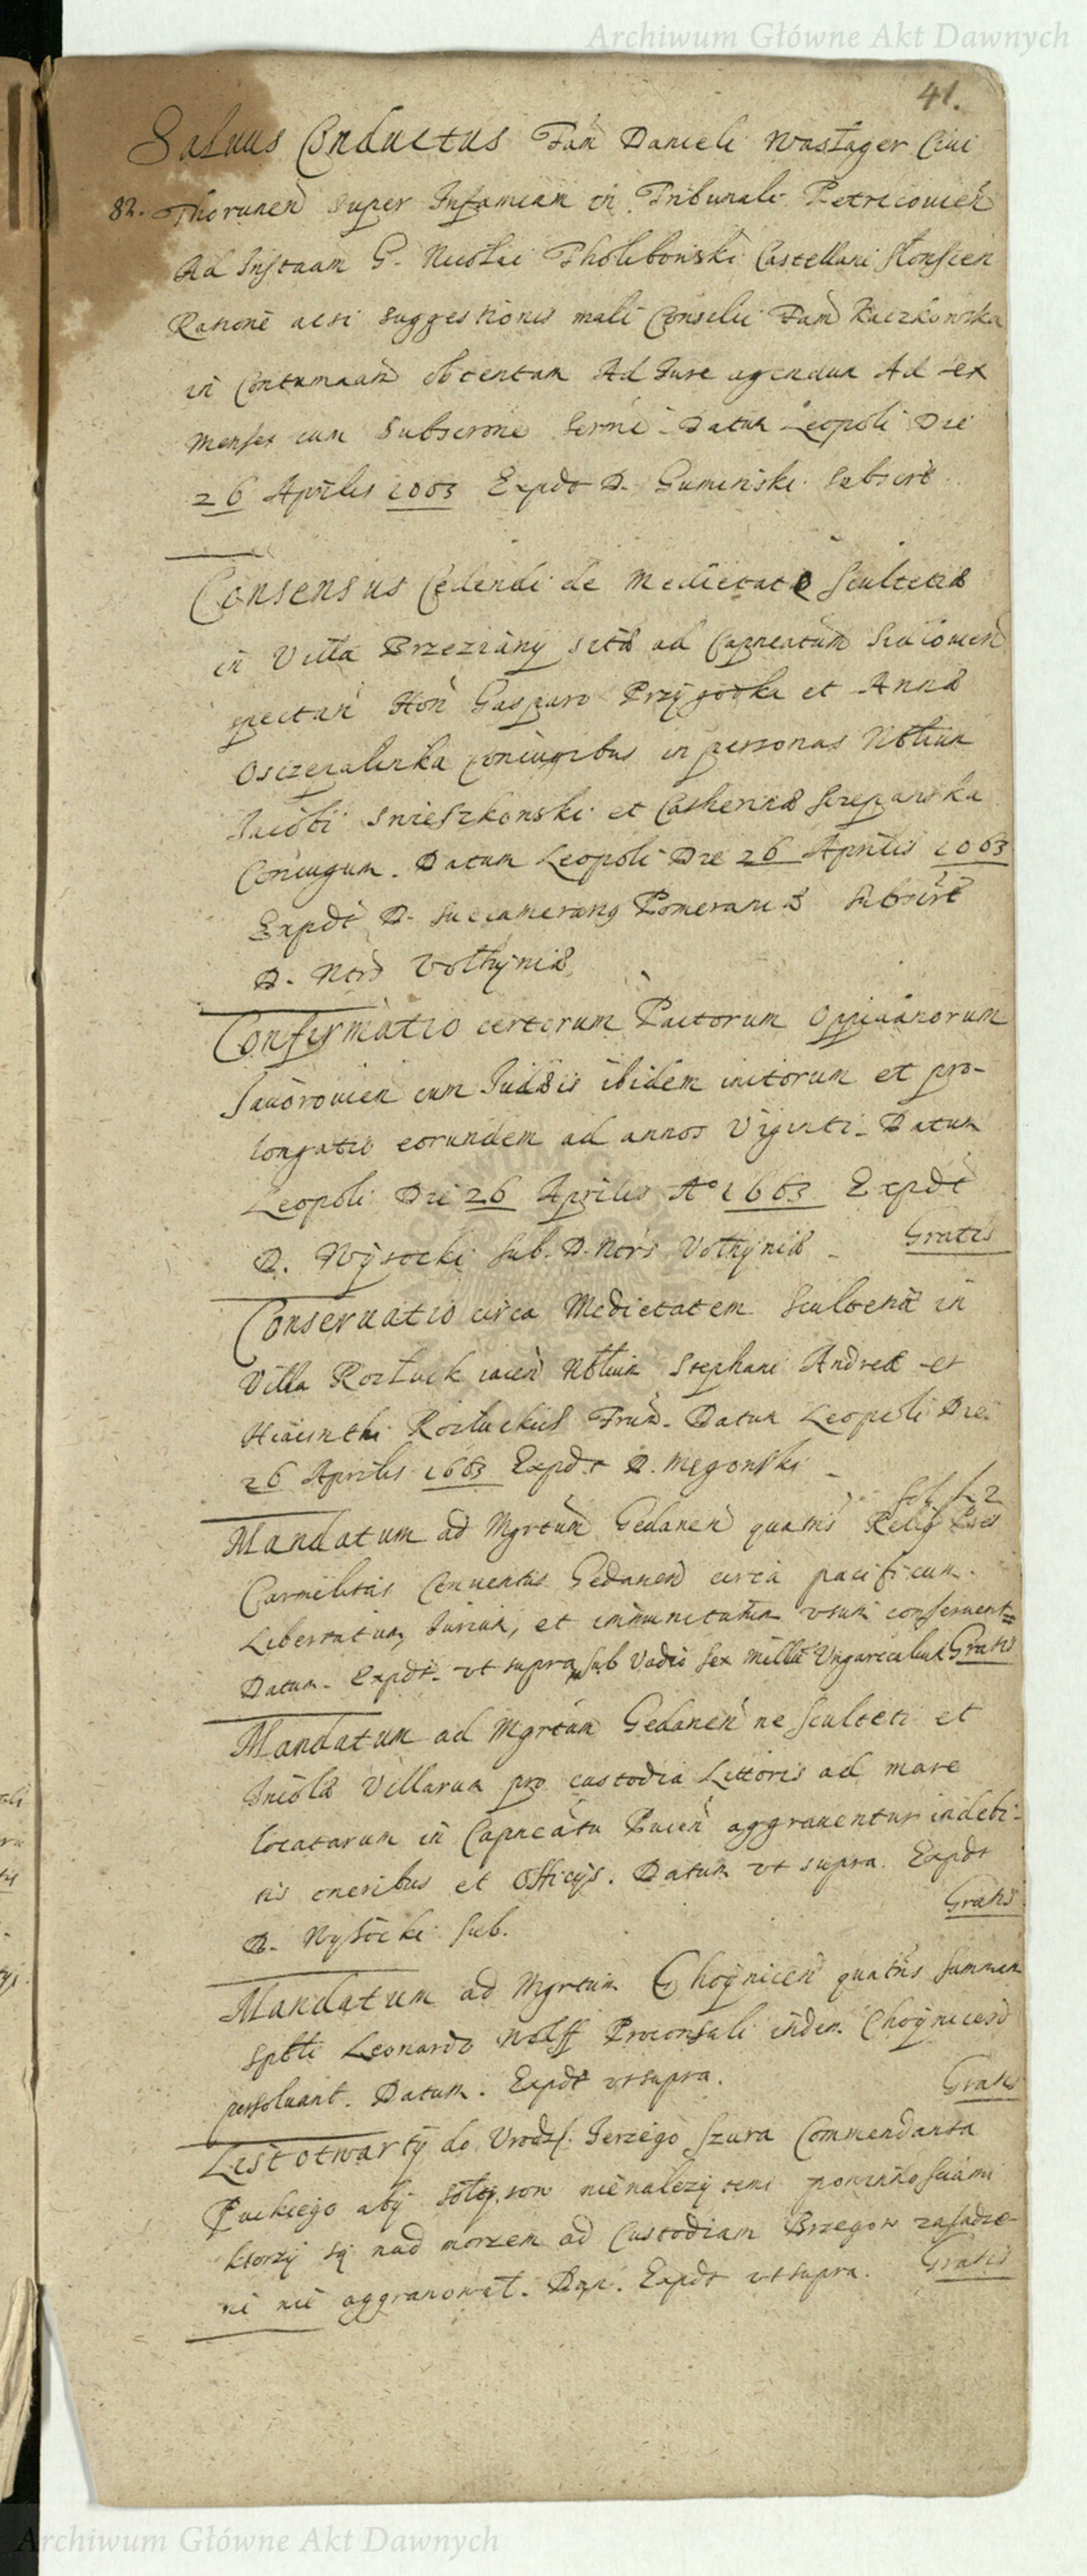 Archiwum Główne Akt Dawnych
41.
Saluus Conductus Fam Danieli Wastager Ciui
82. Thorunen super Infamiam in Tribunali Petricouien
Ad Instaam G. Nicolai Tholibowski Castellani Slonsien
Ratione acsi suggestionis mali Consilii Fam Kaczkowska
in Contumaam obtentam Ad Iure agendum Ad sex
Menses cum Subscrone Sermi. Datum Leopoli Die
26 Aprilis 1663 Expdt D. Guminski Subscrt.
Consensus Cedendi de Medietate Scultetiæ
in Villa Brzeziany sitæ ad Capneatum
spectan Hon Gasparo Przygodka et Annæ
Oszczepalinka coniugibus in personas Nbtium
Jacobi Snieszkowski et Catherinæ Szczepanska
Coniugum. Datum Leopoli Die 26 Aprilis 1663
Expdt D. Succamerarius Pomeraniæ Subscrt
D. Nots Volhyniæ
Confirmatio certorum Pactorum Oppidanorum
Jauorouien cum Judæis ibidem initorum et pro-
longatio eorundem ad annos Viginti. Datum
Leopoli Die 26 Aprilis Ao 1663 Expdt
D. Wysocki Sub. D. Nots Volhyniæ Gratis
Conseruatio circa Medietatem Scultetiæ in
Villa Rozluck iacen Nbtium Stephani Andreæ et
Hiacinthi Rozluckich Frum. Datum Leopoli Die
26 Aprilis 1663 Expdt D. Megonski
Mandatum ad Mgrtum Gedanen quatns Relig Pres
Carmelitas Conuentus Gedanen circa pacificum
Libertatum, Iurium, et immunitatum vsum conseruent
Datum. Expdt. vt supra, sub Vadio sex mille Vngaricalium Gratis
Mandatum ad Mgrtum Gedanen ne Sculteti et
Incolæ Villarum pro custodia Littoris ad mare
locatarum in Capneatu Pucen aggrauentur indebi-
tis oneribus et Officijs. Datum vt supra. Expdt
D. Wysocki Sub. Gratis
Mandatum ad Mgrtum Choynicen quatns summam
Spbli Leonardo Wolff Proconsuli Choynicen
persoluant. Datum. Expdt vt supra. Gratis
List otwarty do Vrodz. Jerzego Szura Commendanta
Puckiego aby sołtysow nienalezytemi powinnosciami
ktorzy są nad morzem ad Custodiam Brzegow zasadze-
ni nie aggrauowal. Expdt vt supra. Gratis
Archiwum Główne Akt Dawnych